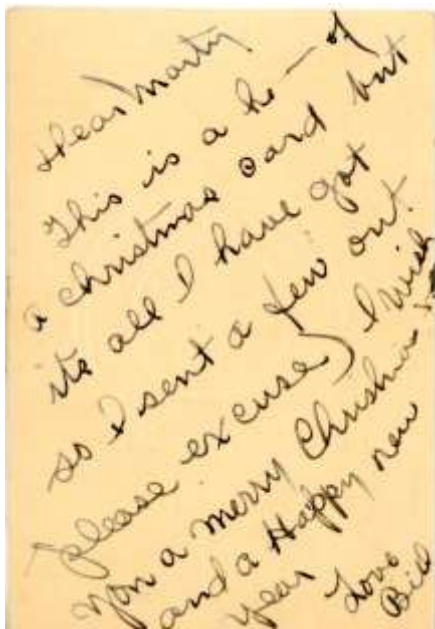 Dear Marty
This is a he— of
a christmas card but
its all I have got
so I sent a few out.
please excuse) I wish
you a merry Christmas
and a Happy new
year
Love
Bill